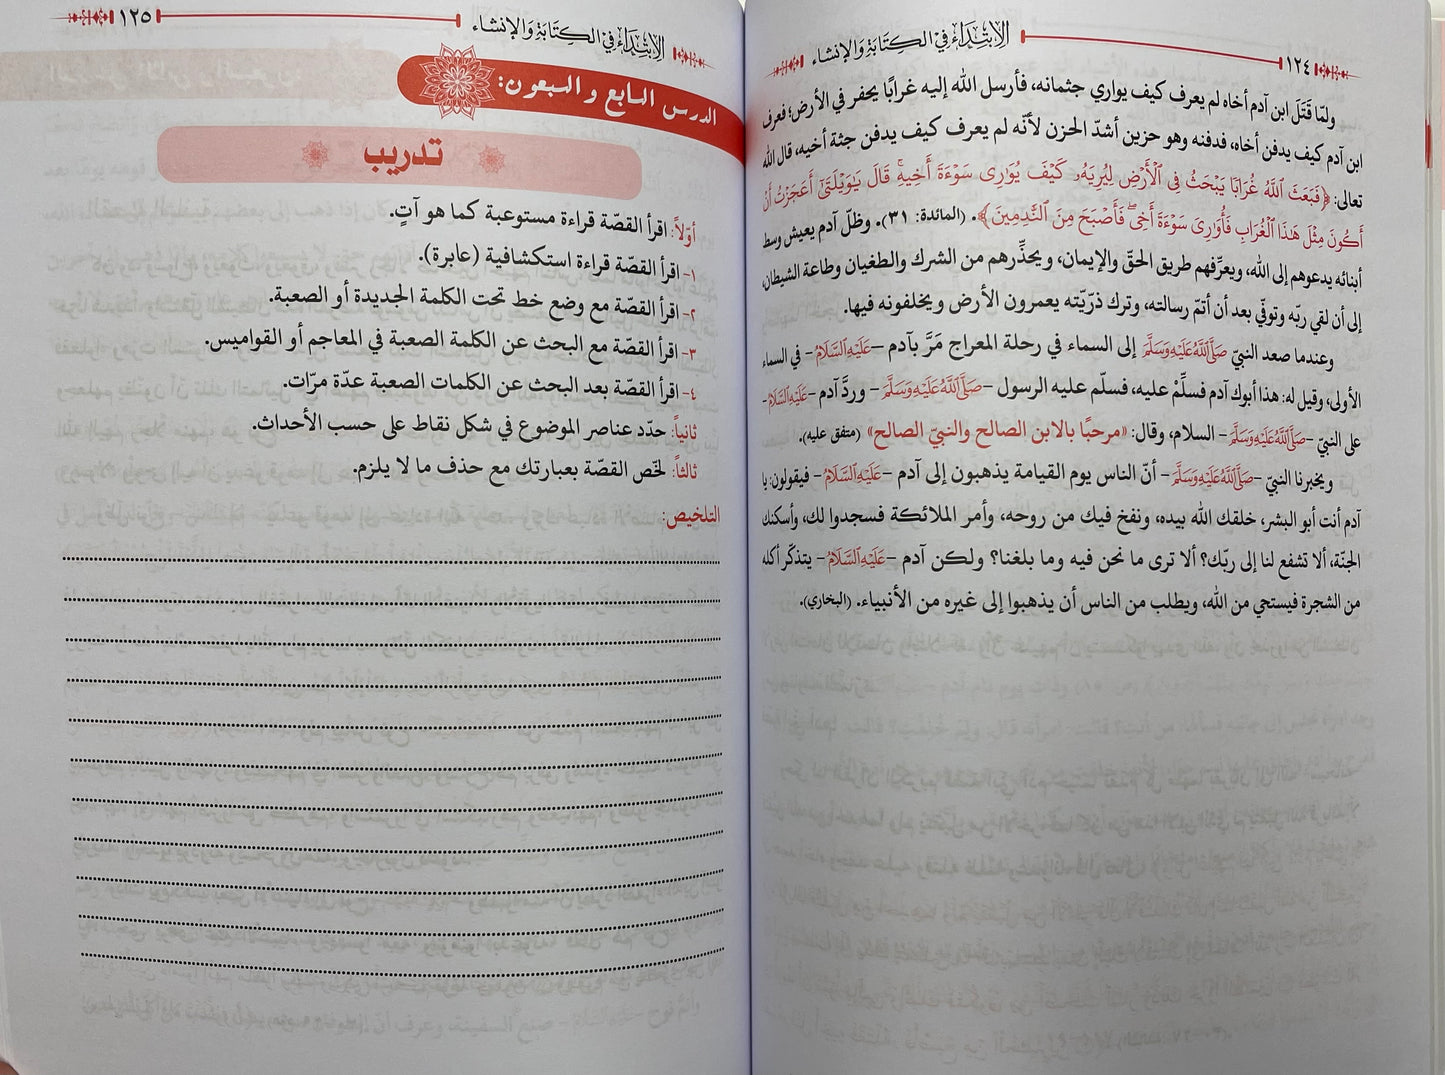 ١٢٤
الابتداء في الكتابة والإنشاء
ولمّا قَتَلَ ابن آدم أخاه لم يعرف كيف يواري جثمانه، فأرسل الله إليه غرابًا يحفر في الأرض؛ فعرف
ابن آدم كيف يدفن أخاه، فدفنه وهو حزين أشدّ الحزن لأنّه لم يعرف كيف يدفن جثة أخيه، قال الله
تعالى: ﴿فَبَعَثَ ٱللَّهُ غُرَابًا يَبْحَثُ فِى ٱلْأَرْضِ لِيُرِيَهُۥ كَيْفَ يُوَارِى سَوْءَةَ أَخِيهِ ۚ قَالَ يَـٰوَيْلَتَىٰٓ أَعَجَزْتُ أَنْ
أَكُونَ مِثْلَ هَـٰذَا ٱلْغُرَابِ فَأُوَٰرِىَ سَوْءَةَ أَخِى ۖ فَأَصْبَحَ مِنَ ٱلنَّـٰدِمِينَ﴾. (المائدة: ٣١). وظلّ آدم يعيش وسط
أبنائه يدعوهم إلى الله، ويعرِّفهم طريق الحقّ والإيمان، ويحذِّرهم من الشرك والطغيان وطاعة الشيطان،
إلى أن لقي ربّه وتوفّي بعد أن أتمّ رسالته، وترك ذرّيّته يعمرون الأرض ويخلفونه فيها.
وعندما صعد النبيّ صَلَّى اللَّهُ عَلَيْهِ وَسَلَّمَ إلى السماء في رحلة المعراج مَرَّ بآدم –عَلَيْهِ السَّلَامُ– في السماء
الأولى، وقيل له: هذا أبوك آدم فسلِّمْ عليه، فسلّم عليه الرسول –صَلَّى اللَّهُ عَلَيْهِ وَسَلَّمَ– وردَّ آدم –عَلَيْهِ السَّلَامُ–
على النبيّ –صَلَّى اللَّهُ عَلَيْهِ وَسَلَّمَ– السلام، وقال: «مرحبًا بالابن الصالح والنبيّ الصالح» (متفق عليه).
ويخبرنا النبيّ –صَلَّى اللَّهُ عَلَيْهِ وَسَلَّمَ– أنّ الناس يوم القيامة يذهبون إلى آدم –عَلَيْهِ السَّلَامُ– فيقولون: يا
آدم أنت أبو البشر، خلقك الله بيده، ونفخ فيك من روحه، وأمر الملائكة فسجدوا لك، وأسكنك
الجنّة، ألا تشفع لنا إلى ربّك؟ ألا ترى ما نحن فيه وما بلغنا؟ ولكن آدم –عَلَيْهِ السَّلَامُ– يتذكّر أكله
من الشجرة فيستحي من الله، ويطلب من الناس أن يذهبوا إلى غيره من الأنبياء. (البخاري).
الابتداء في الكتابة والإنشاء
١٢٥
الدرس السابع و السبعون:
تدريب
أوّلاً: اقرأ القصّة قراءة مستوعبة كما هو آتٍ.
١- اقرأ القصّة قراءة استكشافية (عابرة).
٢- اقرأ القصّة مع وضع خط تحت الكلمة الجديدة أو الصعبة.
٣- اقرأ القصّة مع البحث عن الكلمة الصعبة في المعاجم أو القواميس.
٤- اقرأ القصّة بعد البحث عن الكلمات الصعبة عدّة مرّات.
ثانياً: حدّد عناصر الموضوع في شكل نقاط على حسب الأحداث.
ثالثاً: لخّص القصّة بعبارتك مع حذف ما لا يلزم.
التلخيص: